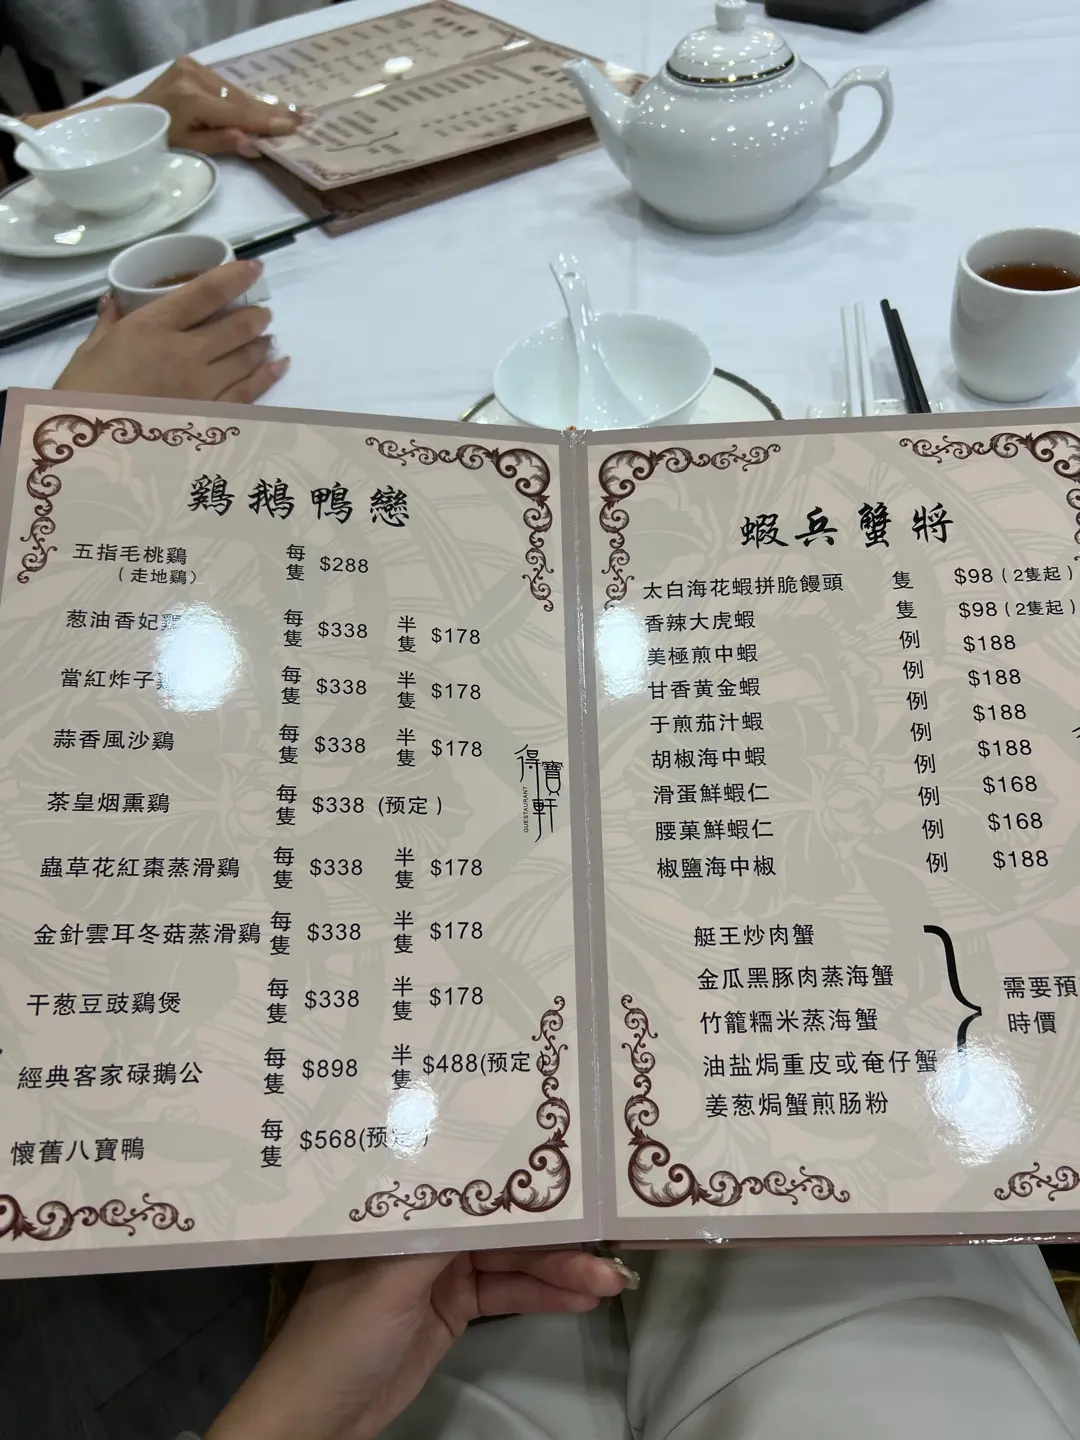 鷄鵝鴨戀
五指毛桃鷄 每隻 $288
（走地鷄）
葱油香妃鷄 每隻 $338 半隻 $178
當紅炸子鷄 每隻 $338 半隻 $178
蒜香風沙鷄 每隻 $338 半隻 $178
茶皇烟熏鷄 每隻 $338 (预定)
蟲草花紅棗蒸滑鷄 每隻 $338 半隻 $178
金針雲耳冬菇蒸滑鷄 每隻 $338 半隻 $178
干葱豆豉鷄煲 每隻 $338 半隻 $178
經典客家碌鵝公 每隻 $898 半隻 $488(预定)
懷舊八寶鴨 每隻 $568(预定)
得寶軒
GUESTAURANT
蝦兵蟹將
太白海花蝦拼脆饅頭 隻 $98（2隻起）
香辣大虎蝦 隻 $98（2隻起）
美極煎中蝦 例 $188
甘香黄金蝦 例 $188
于煎茄汁蝦 例 $188
胡椒海中蝦 例 $188
滑蛋鮮蝦仁 例 $168
腰菓鮮蝦仁 例 $168
椒鹽海中椒 例 $188
艇王炒肉蟹
金瓜黑豚肉蒸海蟹
竹籠糯米蒸海蟹
油盐焗重皮或奄仔蟹
姜葱焗蟹煎肠粉
需要預
時價